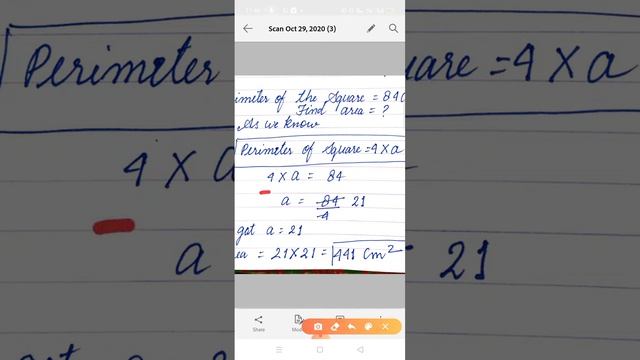 Scan Oct 29, 2020 (3)
imeter of the Square = 84C
Find area = ?
As we know
Perimeter of Square = 4 x a
4 x a = 84
a = 84/4 21
get a = 21
ea = 21 x 21 = 441 Cm²
Share
Perimeter
uare = 4 x a
4 x a
a
21